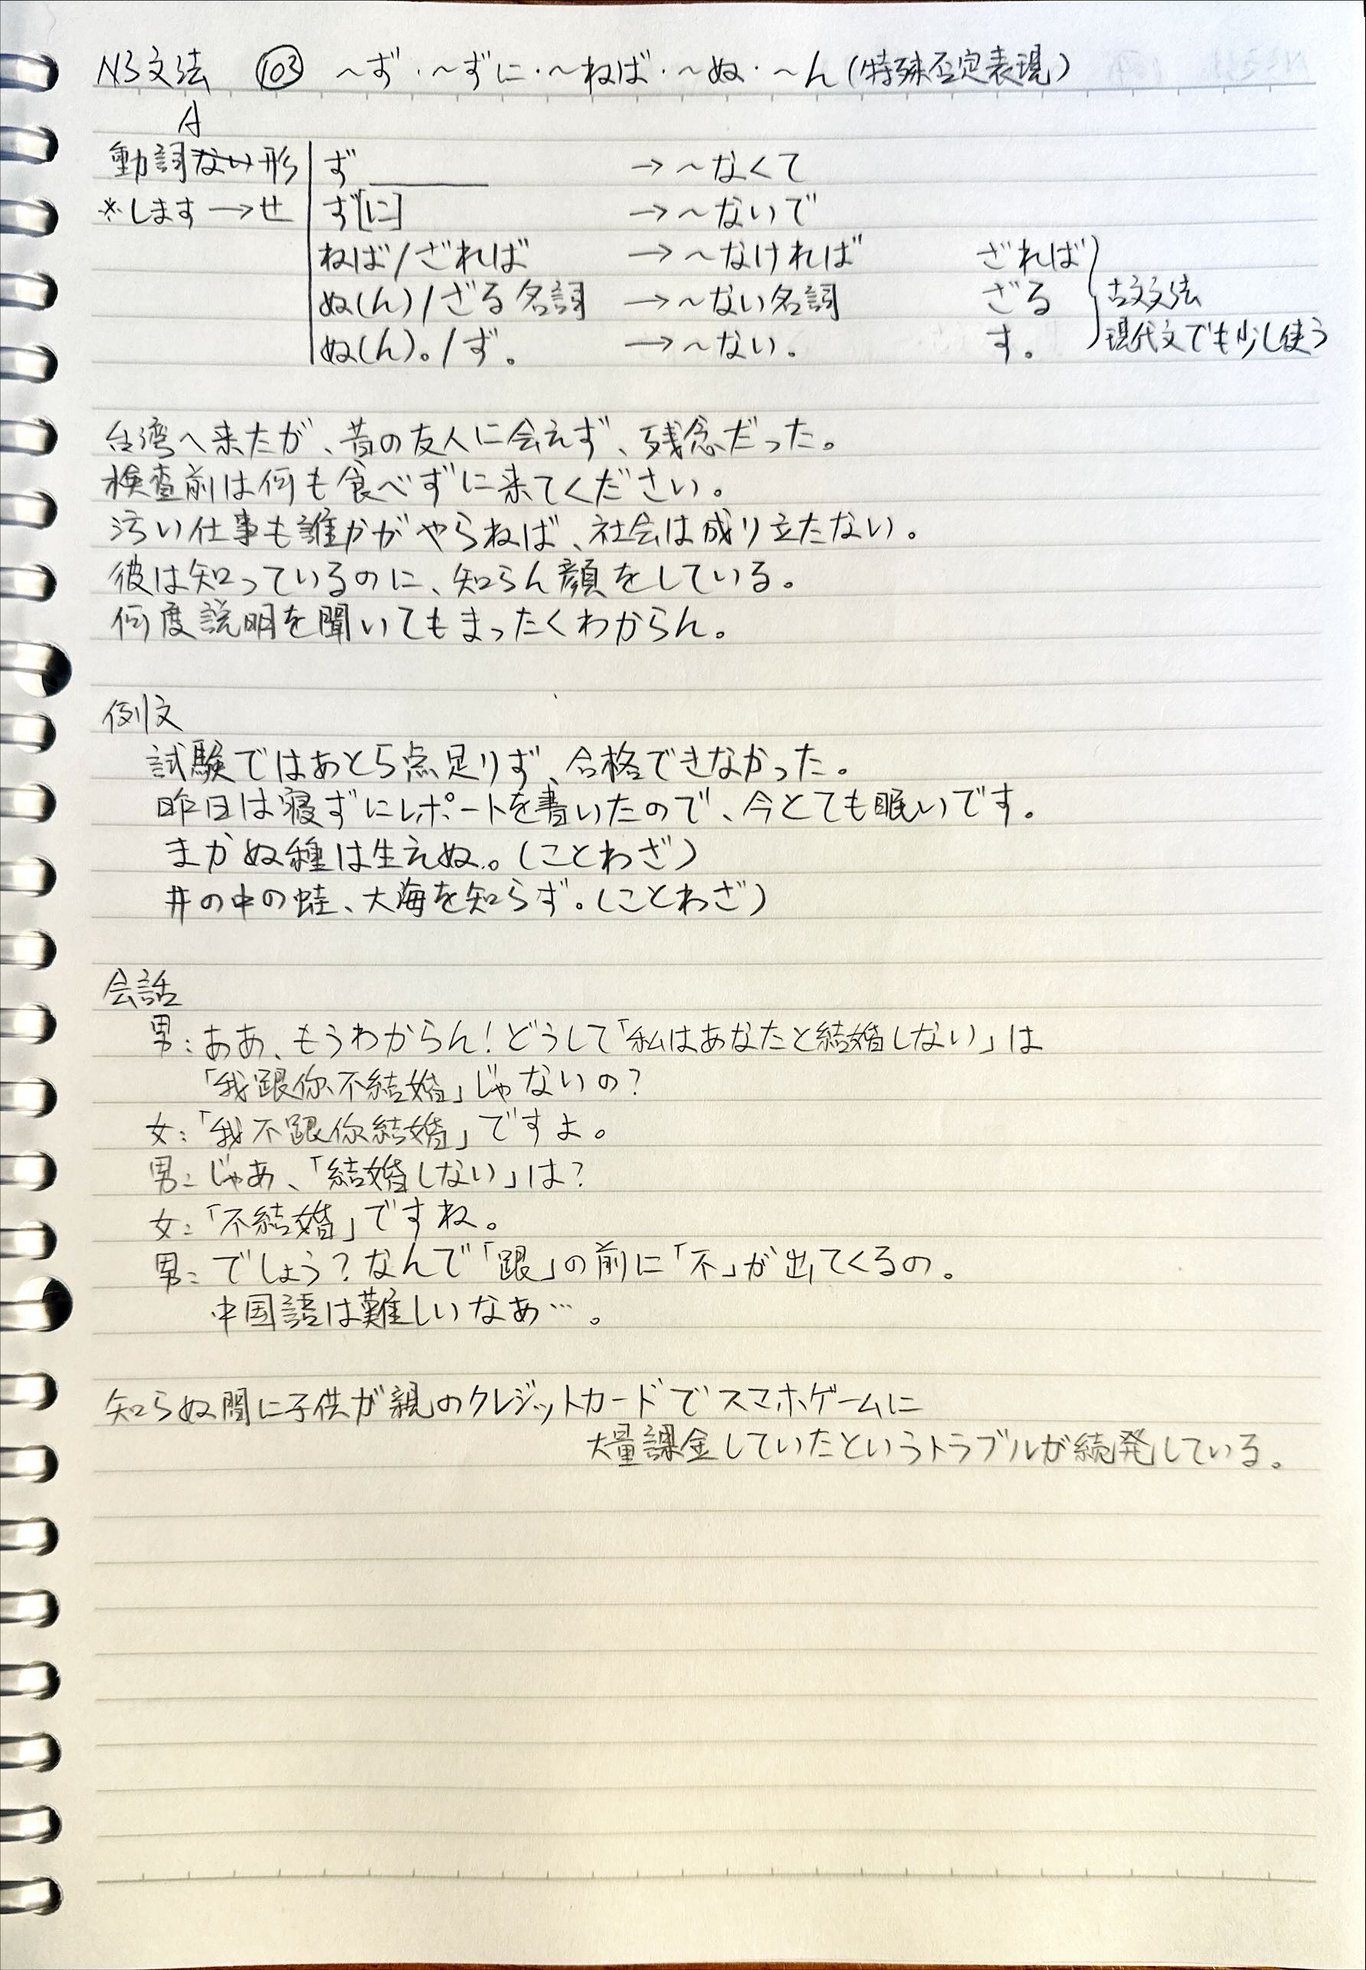 N3文法 103 ～ず・～ずに・～ねば・～ぬ・～ん(特殊否定表現)
A
動詞ない形 ず ＿＿＿ →～なくて
※します→せ ず[に] →～ないで
ねば/ざれば →～なければ ざれば
ぬ(ん)/ざる名詞 →～ない名詞 ざる 古文文法
ぬ(ん)。/ず。 →～ない。 す。 現代文でも少し使う
台湾へ来たが、昔の友人に会えず、残念だった。
検査前は何も食べずに来てください。
汚い仕事も誰かがやらねば、社会は成り立たない。
彼は知っているのに、知らん顔をしている。
何度説明を聞いてもまったくわからん。
例文
試験ではあと5点足りず、合格できなかった。
昨日は寝ずにレポートを書いたので、今とても眠いです。
まかぬ種は生えぬ。(ことわざ)
井の中の蛙、大海を知らず。(ことわざ)
会話
男：ああ、もうわからん!どうして「私はあなたと結婚しない」は
「我跟你不結婚」じゃないの?
女：「我不跟你結婚」ですよ。
男：じゃあ、「結婚しない」は?
女：「不結婚」ですね。
男：でしょう?なんで「跟」の前に「不」が出てくるの。
中国語は難しいなあ…。
知らぬ間に子供が親のクレジットカードでスマホゲームに
大量課金していたというトラブルが続発している。